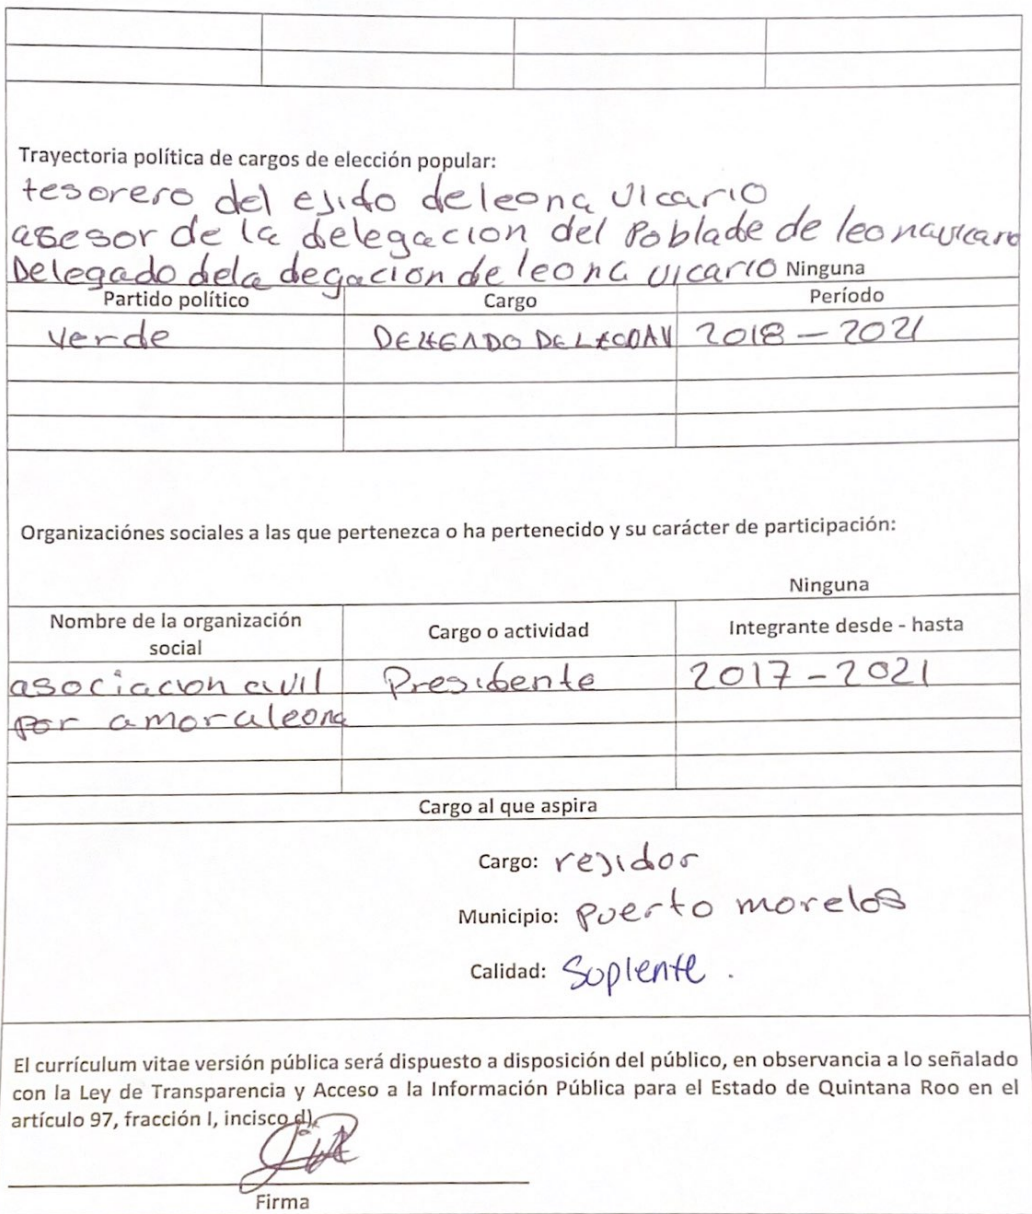 Trayectoria política de cargos de elección popular:
tesorero del ejido de leona vicario
asesor de la delegacion del Poblade de leonavicario
Delegado dela degacion de leona vicario Ninguna
Partido político Cargo Período
verde DELEGADO DE 2018 - 2021
Organizaciónes sociales a las que pertenezca o ha pertenecido y su carácter de participación:
Ninguna
Nombre de la organización social Cargo o actividad Integrante desde - hasta
asociacion civil Presidente 2017 - 2021
por amor a leona
Cargo al que aspira
Cargo: rejidor
Municipio: puerto morelos
Calidad: Suplente .
El currículum vitae versión pública será dispuesto a disposición del público, en observancia a lo señalado
con la Ley de Transparencia y Acceso a la Información Pública para el Estado de Quintana Roo en el
artículo 97, fracción I, incisco d).
Firma